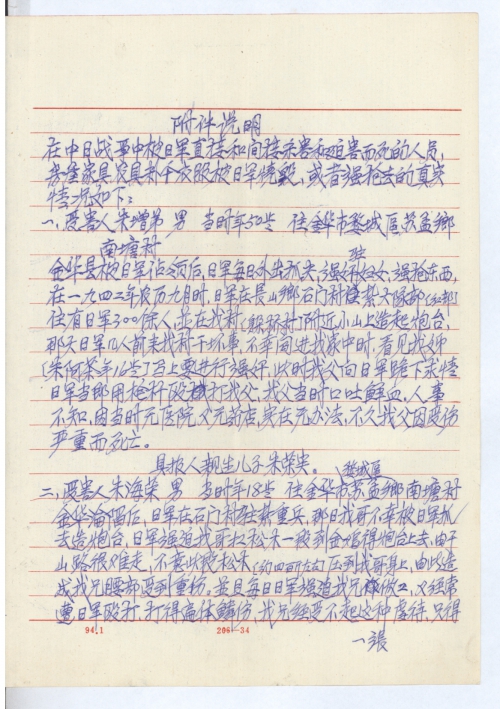 附件说明
在中日战争中被日军直接和间接杀害和迫害而死的人员,
房屋家具农具和干衣服被日军烧毁,或者强抢去的真实
情况如下:
一、受害人朱增弟 男 当时年50岁 住金华市婺城区苏孟鄉
南塘村
驻
金华县被日军占领后,日军每日外出抓夫,强奸妇女,强抢东西,
在一九四二年农历九月时,日军在長山鄉石门村 紫大队部
住有日军300余人,並在我村 附近小山上造起炮台,
那天日军几人前来我村干坏事,不幸闯进我家中时,看见我姊
(朱阿茶年16岁)马上要进行强奸,此时我父向日军跪下求情
日军当即用 打我父,我父当时口吐鲜血,人事
不知,因当时无医院,又无药店,实在无办法,不久我父因受伤
严重而死亡。
具报人親生儿子朱荣奖。
婺城區
二、受害人朱海荣 男 当时年18岁 住金华市苏孟鄉南塘村
金华淪陷后,日军在石门村驻紮重兵,那日我哥不幸被日军抓
去造炮台,日军强迫我哥扛松木一段到 炮台上去,由于
山路很难走,不意此段松木(约四百斤左右)压到我哥身上,由此造
成我兄腰部受到重伤。並且每日日军强迫我兄 做工,又经常
遭日军殴打,打得遍体鳞伤,我兄经受不起这种虐待,只得
94.1
200 -34
一張